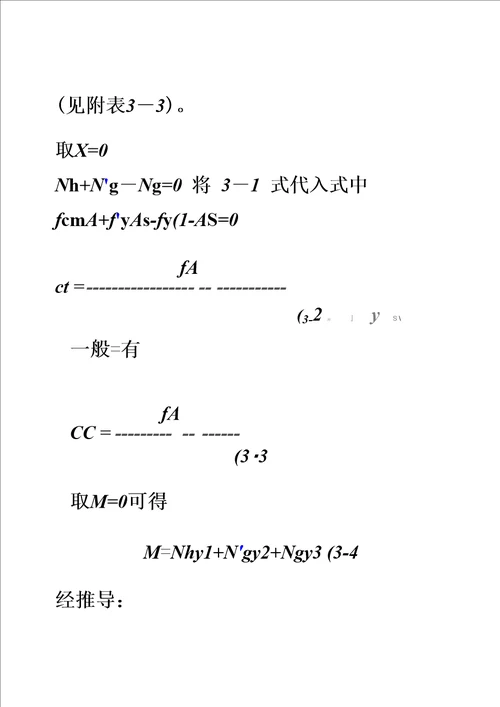 (见附表3－3)。
取X=0
Nh+N'g－Ng=0 将 3－1 式代入式中
fcmA+f'yAs-fy(1-AS=0
fA
ct =----------------- -- -----------
(3-2 y
一般=有
fA
CC = --------- -- ------
(3･3
取M=0可得
M=Nhy1+N'gy2+Ngy3 (3-4
经推导：